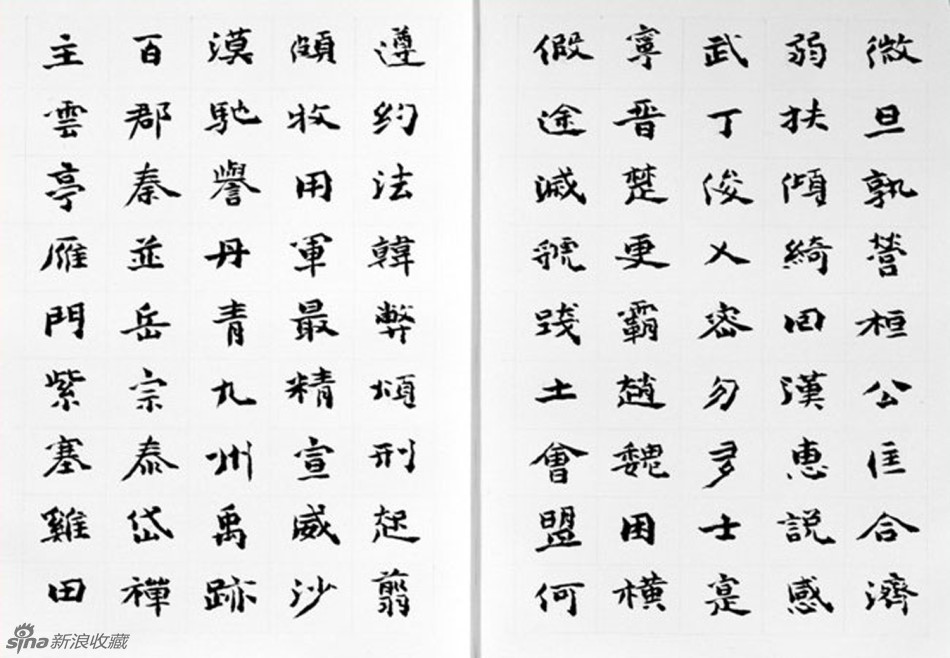 微旦孰營桓公匡合濟
弱扶傾綺回漢惠説感
武丁俊乂密勿多士寔
寧晋楚更霸趙魏困横
假途滅虢踐土會盟何
遵約法韓弊煩刑起翦
頗牧用軍最精宣威沙
漠馳譽丹青九州禹跡
百郡秦並岳宗泰岱禪
主雲亭雁門紫塞雞田
sina新浪收藏